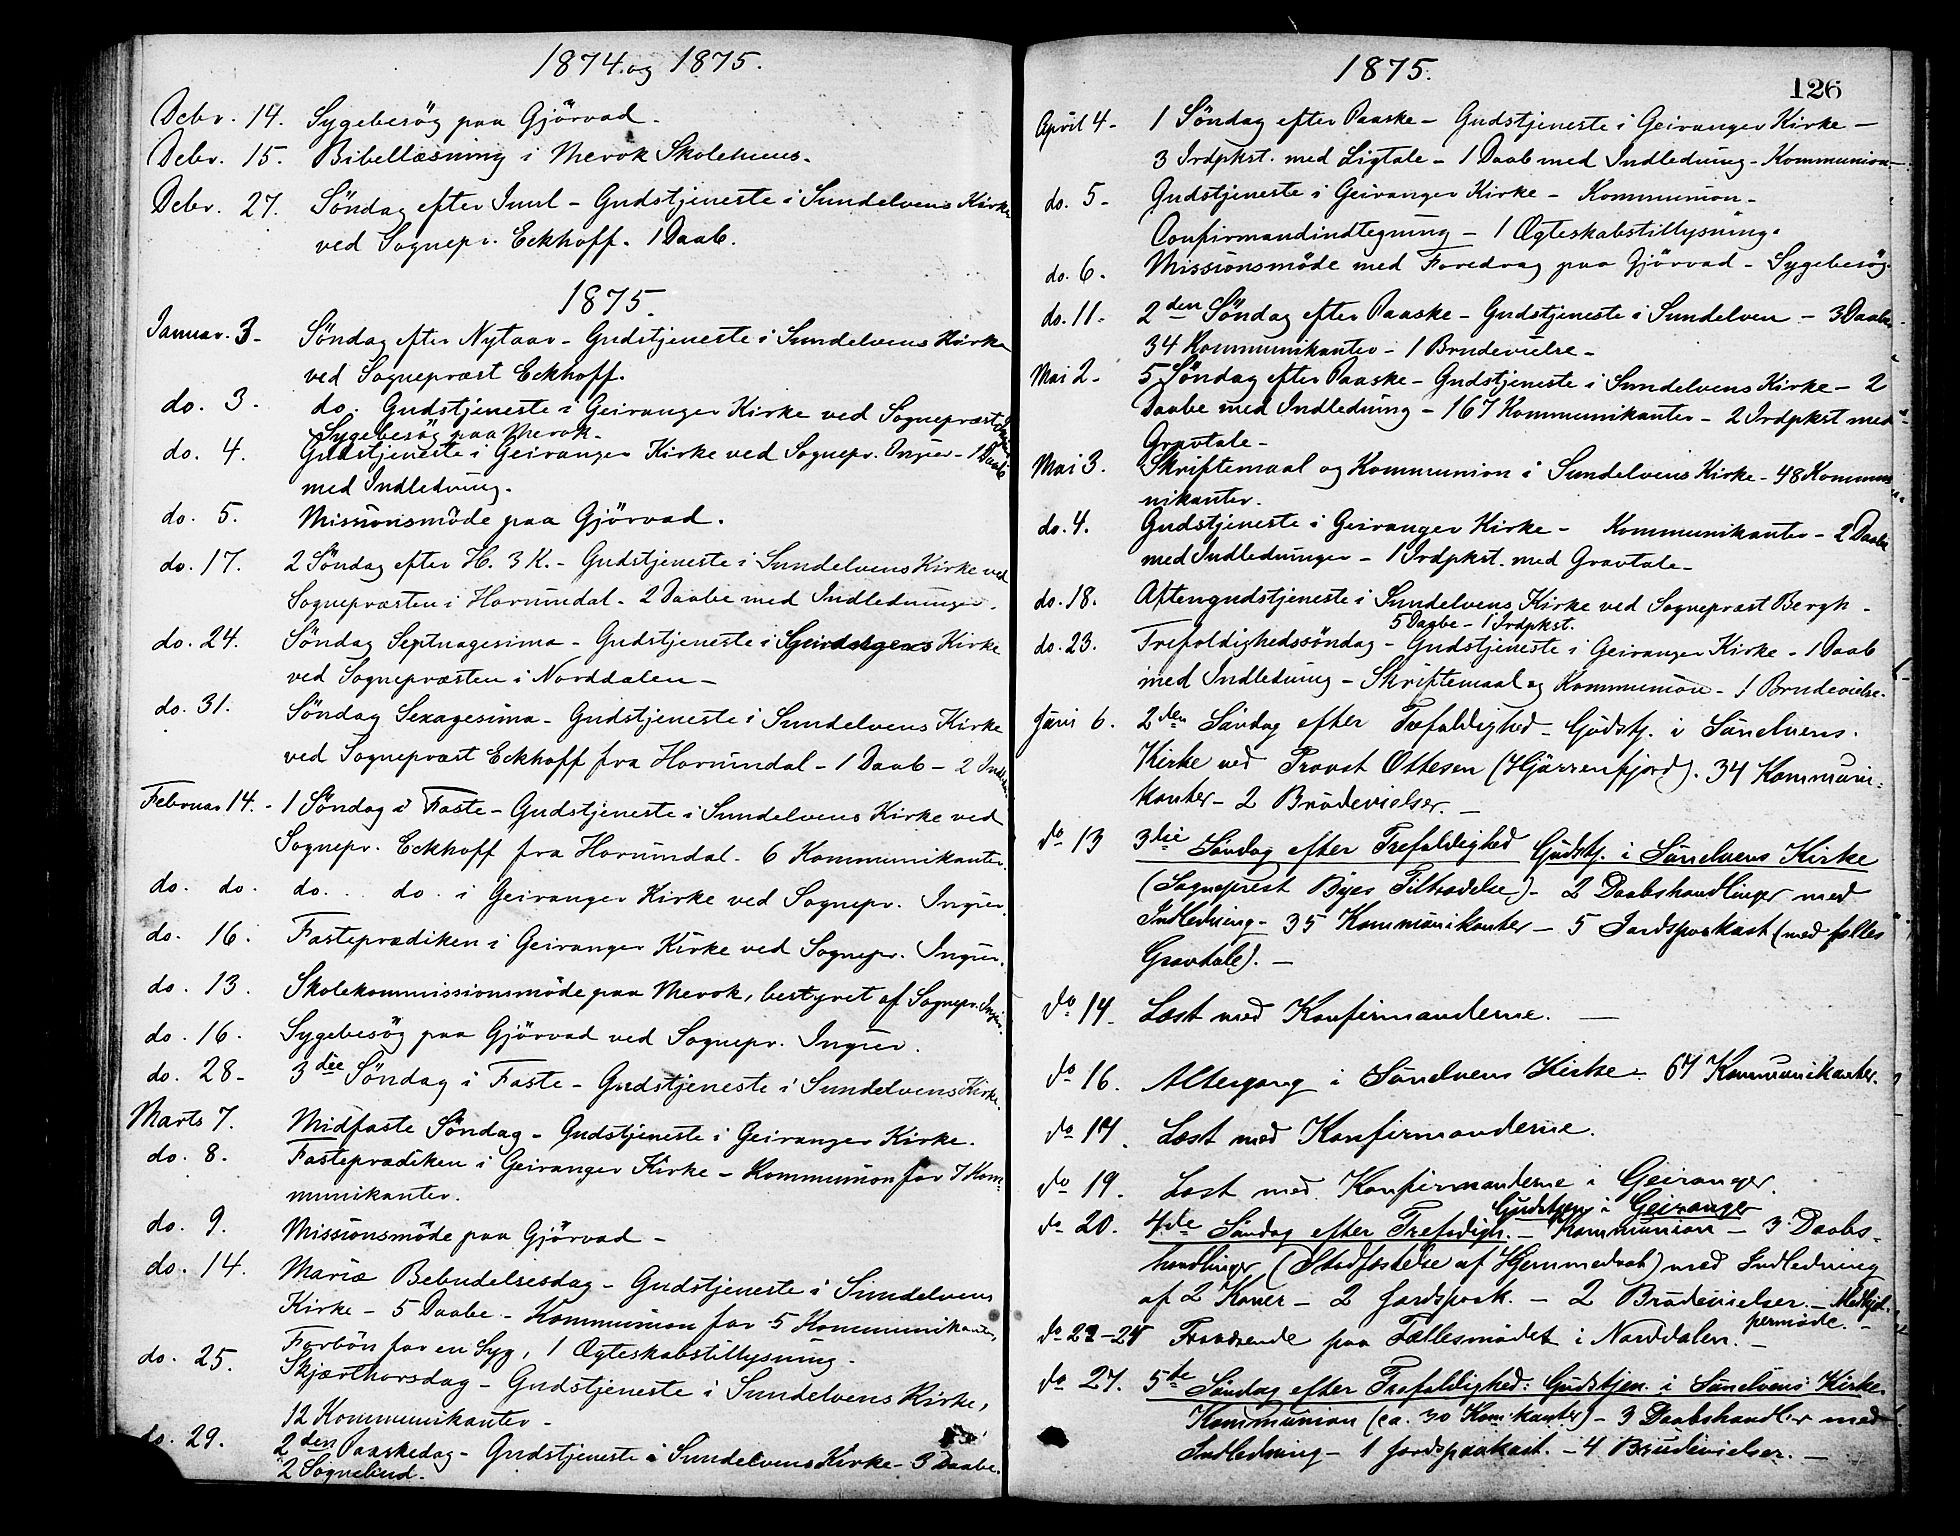 1874 og 1875.
Decbr. 14. Sygebesög paa Gjörvad -
Decbr. 15. Bibellæsning i Merok Skolehuus.
Decbr. 27. Söndag efter Juul - Gudstjeneste i Sundelvens Kirke
ved Sognepr. Eckhoff. 1 Daab.
1875.
Januar. 3 - Söndag efter Nytaar - Gudstjeneste i Sundelvens Kirke
ved Sognepræst Eckhoff.
do. 3. do. Gudstjeneste i Geiranger Kirke ved Sognepræst
Sygebesög paa Merok -
do. 4. Gudstjeneste i Geiranger Kirke ved Sognepr. Ingier - 1 Daab
med Indledning.
do. 5. Missionsmöde paa Gjörvad.
do. 17. 2 Söndag efter H. 3 K. - Gudstjeneste i Sundelvens Kirke ved
Sognepræsten i Horundal - 2 Daabe med Indledninger.
do. 24. Söndag Septuagesima - Gudstjeneste i Kirke
ved Sognepræsten i Norddalen -
do. 31. Söndag Sexagesima - Gudstjeneste i Sundelvens Kirke
ved Sognepræst Eckhoff fra Horundal - 1 Daab - 2
Februar 14. - 1 Söndag i Faste - Gudstjeneste i Sundelvens Kirke ved
Sognepr. Eckhoff fra Horundal. 6 Kommunikanter.
do. do. do. do. i Geiranger Kirke ved Sognepr. Ingier.
do. 16. Fasteprædiken i Geiranger Kirke ved Sognepr. Ingier.
do. 13. Skolekommissionsmöde paa Merok, bestyret af Sognepr. Ingier.
do. 16. Sygebesög paa Gjörvad ved Sognepr. Ingier.
do. 28 - 3die Söndag i Faste - Gudstjeneste i Sundelvens Kirke.
Marts 7. Midfaste Söndag - Gudstjeneste i Geiranger Kirke.
do. 8. Fasteprædiken i Geiranger Kirke - Kommunion for 7 Kom-
munikanter.
do. 9. Missionsmöde paa Gjörvad -
do. 14. Mariæ Bebudelsesdag - Gudstjeneste i Sundelvens
Kirke - 5 Daabe - Kommunion for 5 Kommunikanter,
Forbön for en Syg, 1 Ægteskabstillysning -
do. 25. Skjærthorsdag - Gudstjeneste i Sundelvens Kirke,
12 Kommunikanter -
do. 29. 2den Paaskedag - Gudstjeneste i Sundelvens Kirke - 3 Daabe.
2 Sognebud.
1875.
126
April 4 - 1 Söndag efter Paaske - Gudstjeneste i Geiranger Kirke -
3 Jrdpkst. med Ligtale - 1 Daab med Indledning - Kommunion -
do. 5 - Gudstjeneste i Geiranger Kirke - Kommunion -
Confirmandindtegning - 1 Ægteskabstillysning.
do. 6. Missionsmöde med Foredrag paa Gjörvad - Sygebesög.
do. 11. 2den Söndag efter Paaske - Gudstjeneste i Sundelven - 3 Daabe
34 Kommunikanter - 1 Brudevielse -
Mai 2 - 5 Söndag efter Paaske - Gudstjeneste i Sundelvens Kirke - 2
Daabe med Indledning - 167 Kommunikanter - 2 Jrdpkst med
Gravtale -
Mai 3. Skriftemaal og Kommunion i Sundelvens Kirke - 48 Kommu-
nikanter.
do. 4. Gudstjeneste i Geiranger Kirke - Kommunikanter - 2 Daabe
med Indledninger - 1 Jrdpkst. med Gravtale -
do. 18. Aftengudstjeneste i Sundelvens Kirke ved Sognepræst Bergh -
5 Daabe - 1 Jrdpkst.
do. 23. Trefoldighedssöndag - Gudstjeneste i Geiranger Kirke - 1 Daab
med Indledning - Skriftemaal og Kommunion - 1 Brudevielse.
Juni 6. 2den Söndag efter Trefoldighed - Gudstj. i Sunelvens
Kirke ved Provst Ottesen (Hjörrenfjord). 34 Kommuni-
kanter - 2 Brudevielser. -
do 13 3die Söndag efter Trefoldighed Gudstj. i Sunelvens Kirke
(Sogneprest Tiltrædelse) - 2 Daabshandlinger med
Indledning - 35 Kommunikanter - 5 Jordspaakast (med fælles
Gravtale). -
do 14. Læst med Konfirmanderne. -
do 16. Altergang i Sunelvens Kirke. 67 Kommunikanter.
do 17. Læst med Konfirmanderne.
do 19. Læst med Konfirmanderne i Geiranger.
Gudstjen. i Geiranger
do 20. 4de Söndag efter Trefoldigh. - Kommunion - 3 Daabs-
handlinger (Stadfæstelse af Hjemmedaab) med Indledning
af 2 Koner - 2 Jordspaak. - 2 Brudevielser. - Medhjel-
permöde. -
do 22-24 Fraværende paa Fællesmödet i Norddalen. -
do 27. 5te Söndag efter Trefoldighed: Gudstjen. i Sunelvens Kirke.
Kommunion (ca. 30 Komikanter) - 3 Daabshandler med
Indledning - 1 Jordspaakast. - 4 Brudevielser. -